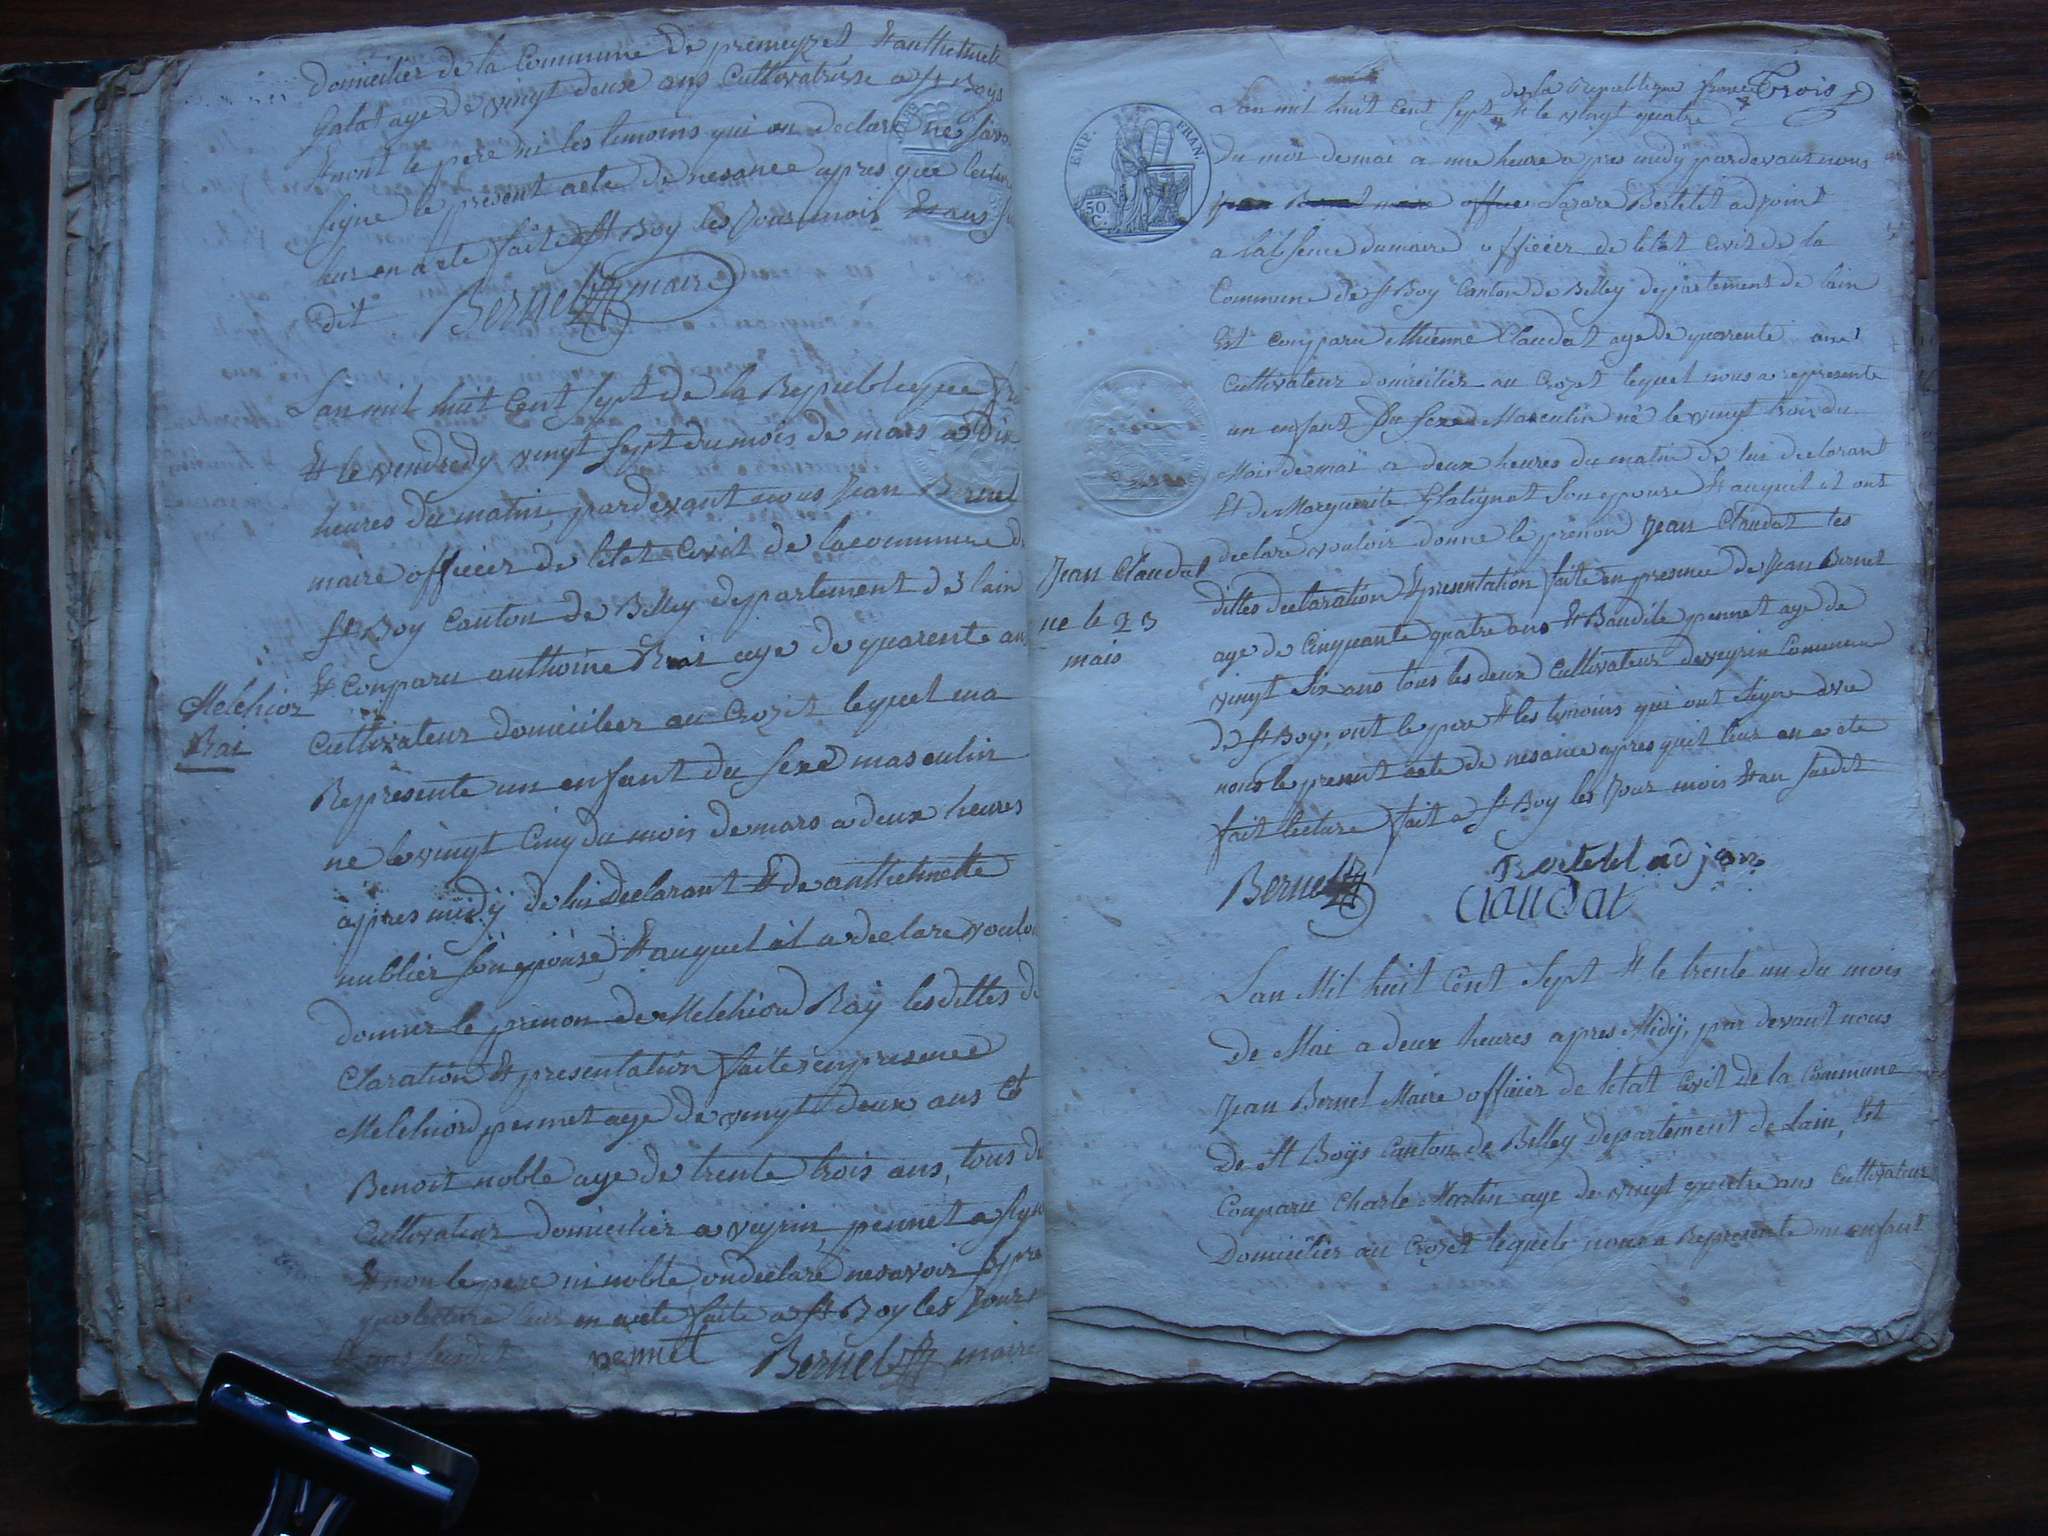 domicilier de la Commune de premeyzet & anthelmette
galat age de vingt deux ans Cultivatrisse a St Boys
& nont le pere ni les temoins qui on declare ne savoir
signe le present acte de nesance apres que lecture
leur en a ete faite a St Boy les Jour mois & ans su
dit Bernel maire
Lan mil huit Cent sept de la Republique fr
& le vendredy vingt sept du mois de mars a dix
heures du matin, pardevant nous Jean Bernel
maire officier de letat Civil de la commune de
St Boy Canton de Belley departement de lain
Est Comparu anthoine Rai age de quarente ans
Melchior
Rai
Cultivateur domicilier au Crozet lequel ma
Represente un enfant du sexe masculin
ne le vingt Cinq du mois de mars a deux heures
apres midÿ de lui declarant & de anthelmette
nublier son epouse, & auquel il a declare voulo
donner le prenon de Melchior Raÿ les dittes de
Claration & presentation faite en presence
Melchior pennet age de vingt deux ans &
Benoit noble age de trente trois ans, tous d
Cultivateur domicilier a veyrin, pennet a signe
& non le pere ni noble on declare ne savoir apre
que lecture leur en a ete faite a St Boy les Jour
& ans susdit pennet Bernel maire
Trois
de la Republique france
Lan mil huit Cent sept & le vingt quatre
EMP. FRAN.
50 C.
Du mois de mai a une heure apres midÿ pardevant nous
Lazare Bertetet adjoint
a labsence du maire officier de letat Civil de la
Commune de St Boy Canton de Belley departement de lain
Est Comparu Ethienne Claudat age de quarente ans
Cultivateur domicilier au Crozet lequel nous a represente
un enfant du sexe Masculin né le vingt trois du
Mois de mai a deux heures du matin de lui declarant
& de Marguerite Glatignat son epouse & auquel il ont
declare vouloir donne le prenon Jean Claudat les
Jean Claudat
ne le 23
mais
dittes declaration & presentation faite en presence de Jean Bernet
age de Cinquante quatre ans & Baudile pennet age de
vingt six ans tous les deux Cultivateur de veyrin Commune
de St Boy, ont le pere & les temoins qui ont signe avec
nous le present acte de nesaince apres qu'il leur en a ete
fait lecture fait a St Boy les Jour mois & an susdit
Bernel Bertetet adjoin
Claudat
Lan Mil huit Cent Sept & le trente un du mois
De Mai a deux heures apres Midÿ, par devant nous
Jean Bernel Maire officier de letat Civil de la Commune
De St Boÿs Canton de Belley Departement de Lain, Est
Comparu Charle Martin age de vingt quatre ans Cultivateur
Domicilier au Crozet lequele nous a Represente un enfant